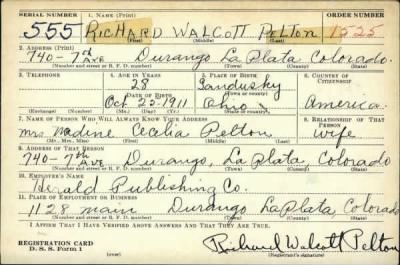 SERIAL NUMBER 1. NAME (Print) ORDER NUMBER
555 RICHARD WALCOTT PELTON 1525
(First) (Middle) (Last)
2. ADDRESS (Print)
740-7th AVE Durango La Plata Colorado.
(Number and street or R. F. D. number) (Town) (County) (State)
3. TELEPHONE 4. AGE IN YEARS 5. PLACE OF BIRTH 6. COUNTRY OF CITIZENSHIP
28 Sandusky
DATE OF BIRTH (Town or county)
Oct 25-1911 Ohio America.
(Exchange) (Number) (Mo.) (Day) (Yr.) (State or country)
7. NAME OF PERSON WHO WILL ALWAYS KNOW YOUR ADDRESS 8. RELATIONSHIP OF THAT PERSON
Mrs Nadine Cecelia Pelton wife
(Mr., Mrs., Miss) (First) (Middle) (Last)
9. ADDRESS OF THAT PERSON
740-7th AVE Durango, La Plata, Colorado
(Number and street or R. F. D. number) (Town) (County) (State)
10. EMPLOYER'S NAME
Herald Publishing Co.
11. PLACE OF EMPLOYMENT OR BUSINESS
1128 main Durango La Plata, Colorado
(Number and street or R. F. D. number) (Town) (County) (State)
I AFFIRM THAT I HAVE VERIFIED ABOVE ANSWERS AND THAT THEY ARE TRUE.
REGISTRATION CARD
D. S. S. Form 1 (over) Richard Walcott Pelton
(Registrant's signature)